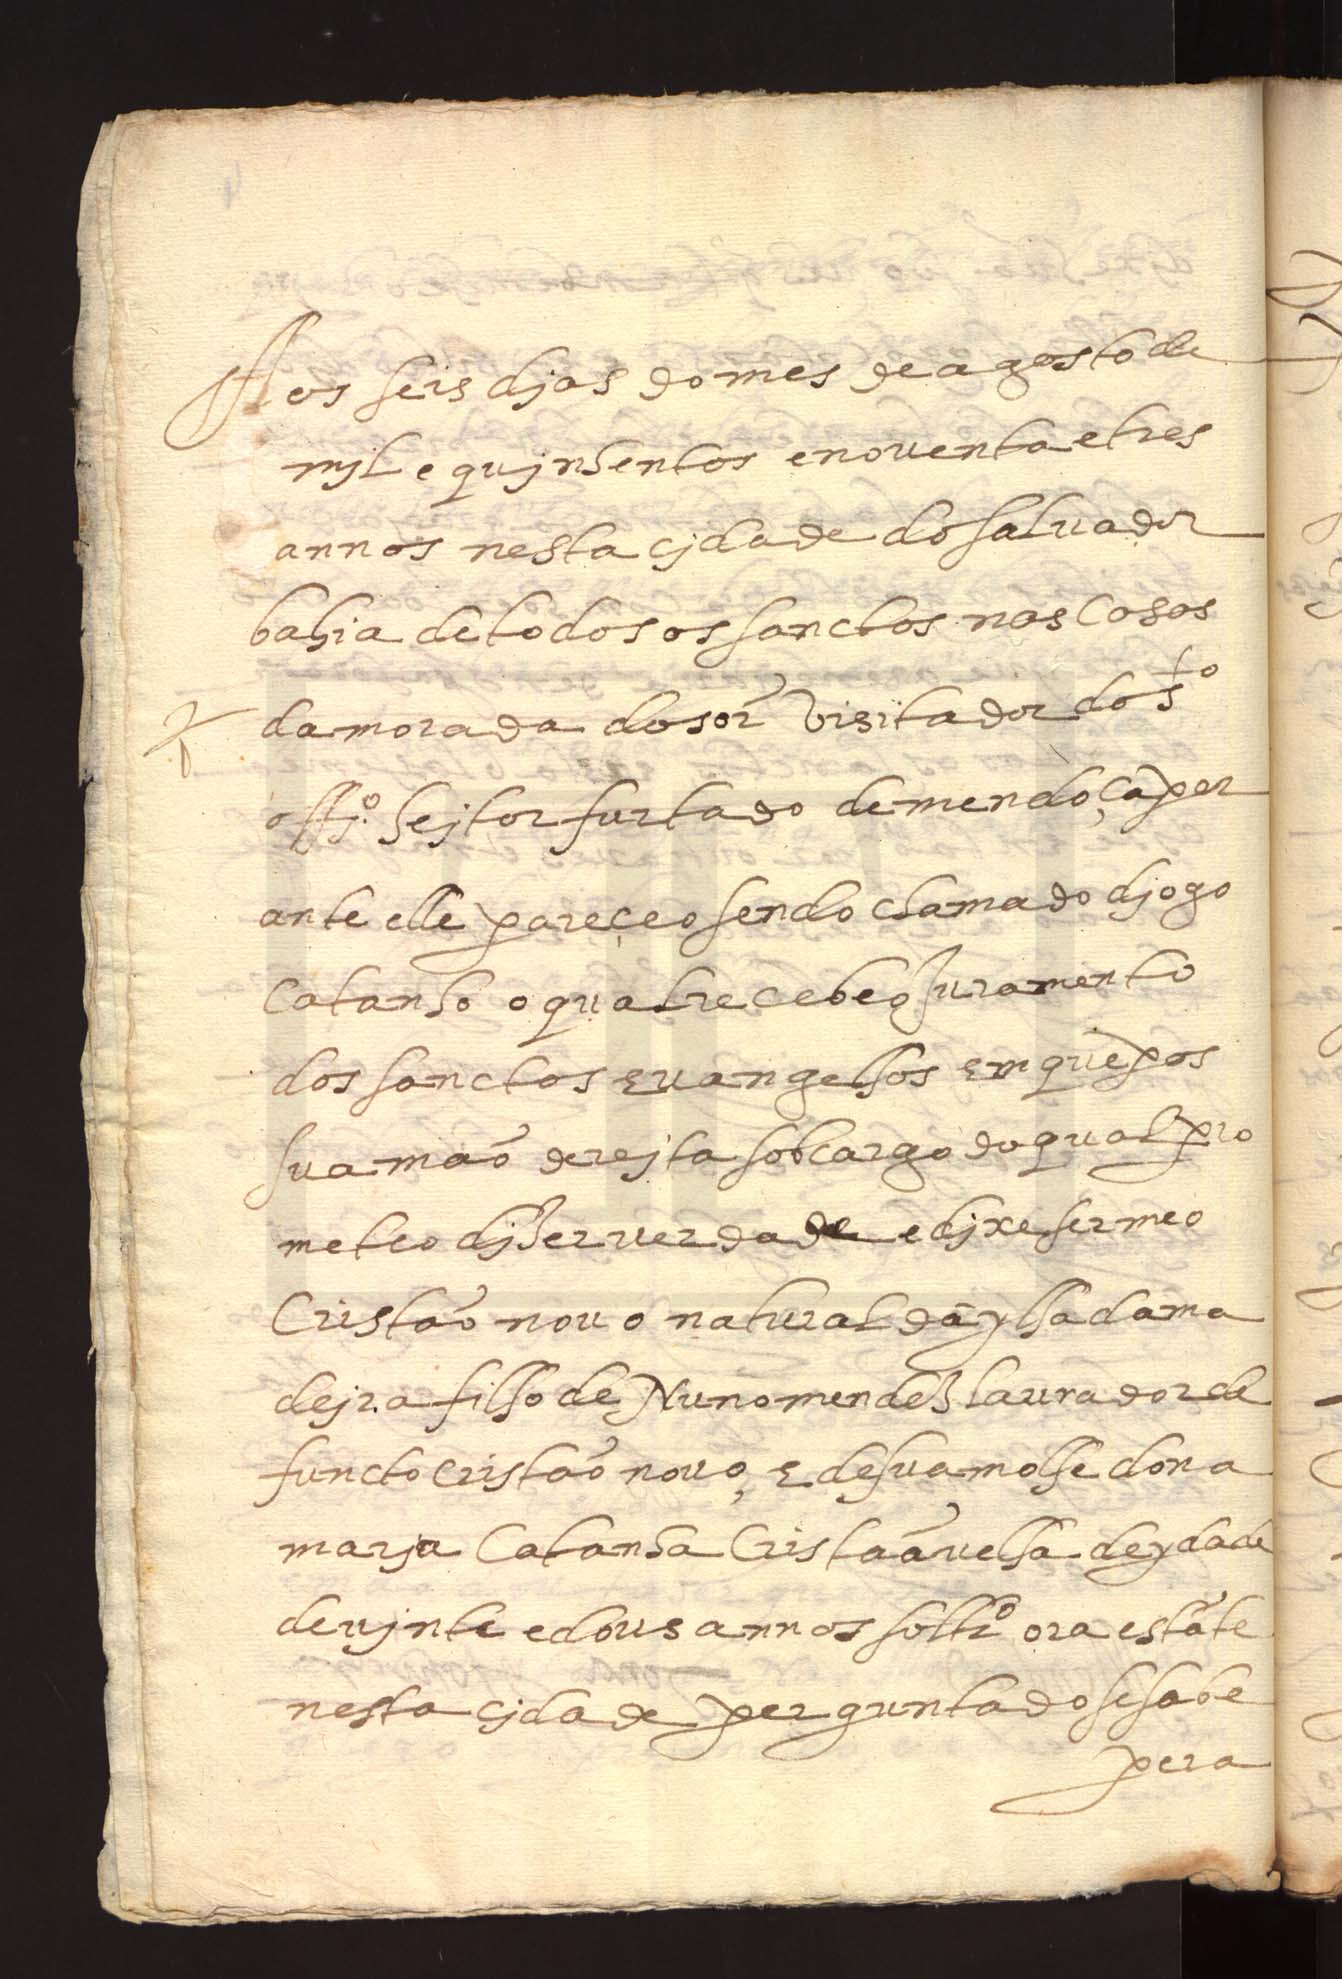 Aos seis djas do mes de agosto de
mjl e qujnhentos e nouenta e tres
annos nesta çjdade do saluador
bahia de todos os sanctos nas Casas
da morada do sor̃ visitador do sto
offjº. hejtor furtado de mendoça per
ante elle pareçeo sendo chamado djogo
Catanho o qual recebeo Juramento
dos sanctos euangelhos em que pos
sua mão derejta sob cargo do qual pro
meteo djzer verdade e djxe ser meo
Cristão nouo natural da ylha da ma
dejra filho de Nuno mendez laurador de
functo cristão nouo, e de sua molhe dona
marja Catanha Cristaã velha de ydade
de vjnte e dous annos soltrº ora estãte
nesta çjdade perguntado se sabe
pera